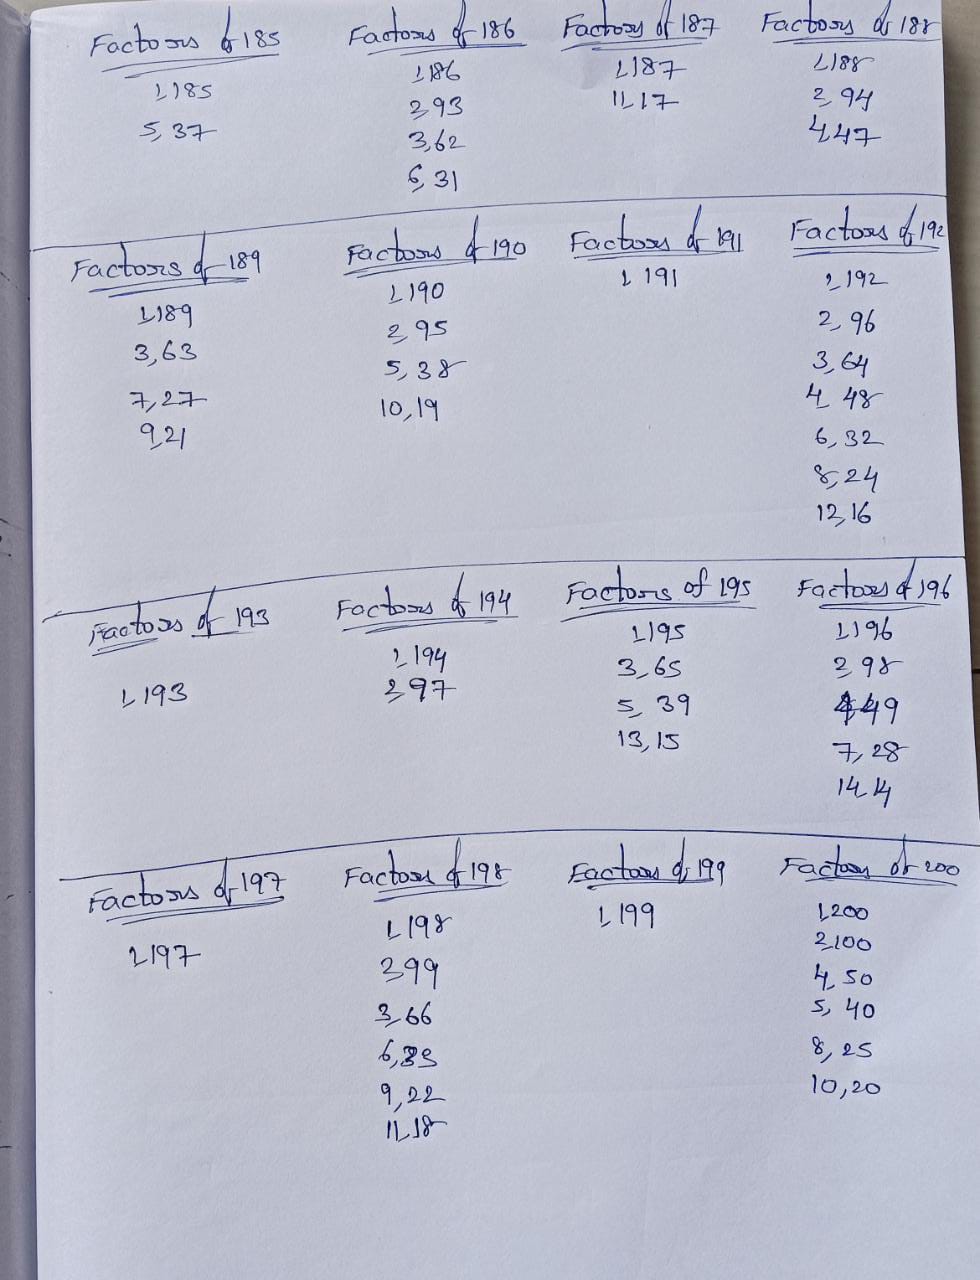 Factors of 185
1,185
5,37
Factors of 186
1,186
2,93
3,62
6,31
Factors of 187
1,187
11,17
Factors of 188
1,188
2,94
4,47
Factors of 189
1,189
3,63
7,27
9,21
Factors of 190
1,190
2,95
5,38
10,19
Factors of 191
1,191
Factors of 192
1,192
2,96
3,64
4,48
6,32
8,24
12,16
Factors of 193
1,193
Factors of 194
1,194
2,97
Factors of 195
1,195
3,65
5,39
13,15
Factors of 196
1,196
2,98
4,49
7,28
14,14
Factors of 197
1,197
Factors of 198
1,198
2,99
3,66
6,33
9,22
11,18
Factors of 199
1,199
Factors of 200
1,200
2,100
4,50
5,40
8,25
10,20